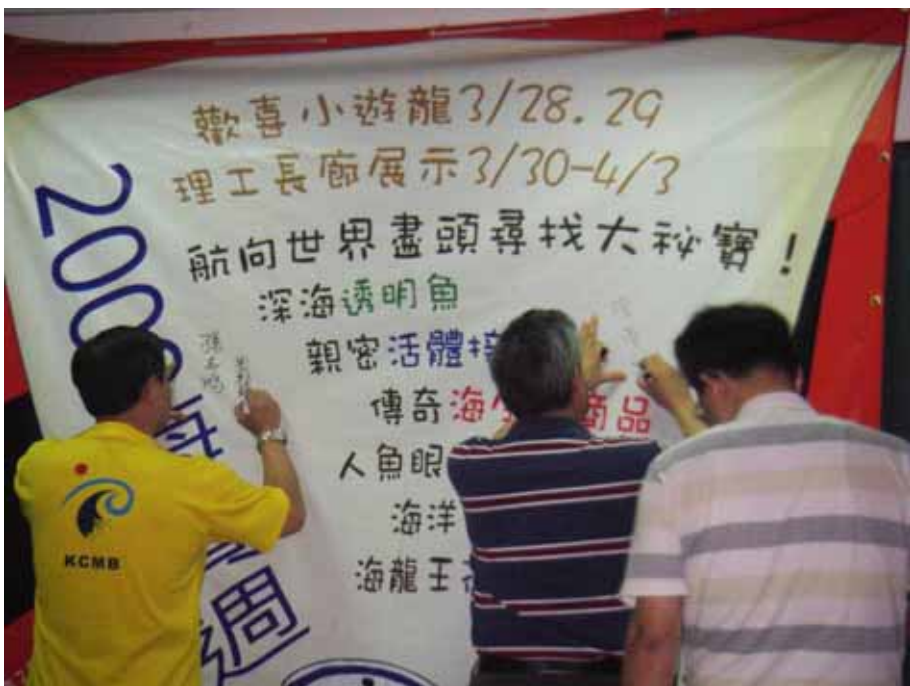 歡喜小遊龍3/28.29
理工長廊展示3/30-4/3
航向世界盡頭尋找大祕寶!
深海透明魚
親密活體接
傳奇海 商品
人魚眼
海洋
海龍王
200
週
孫志鴻
KCMB